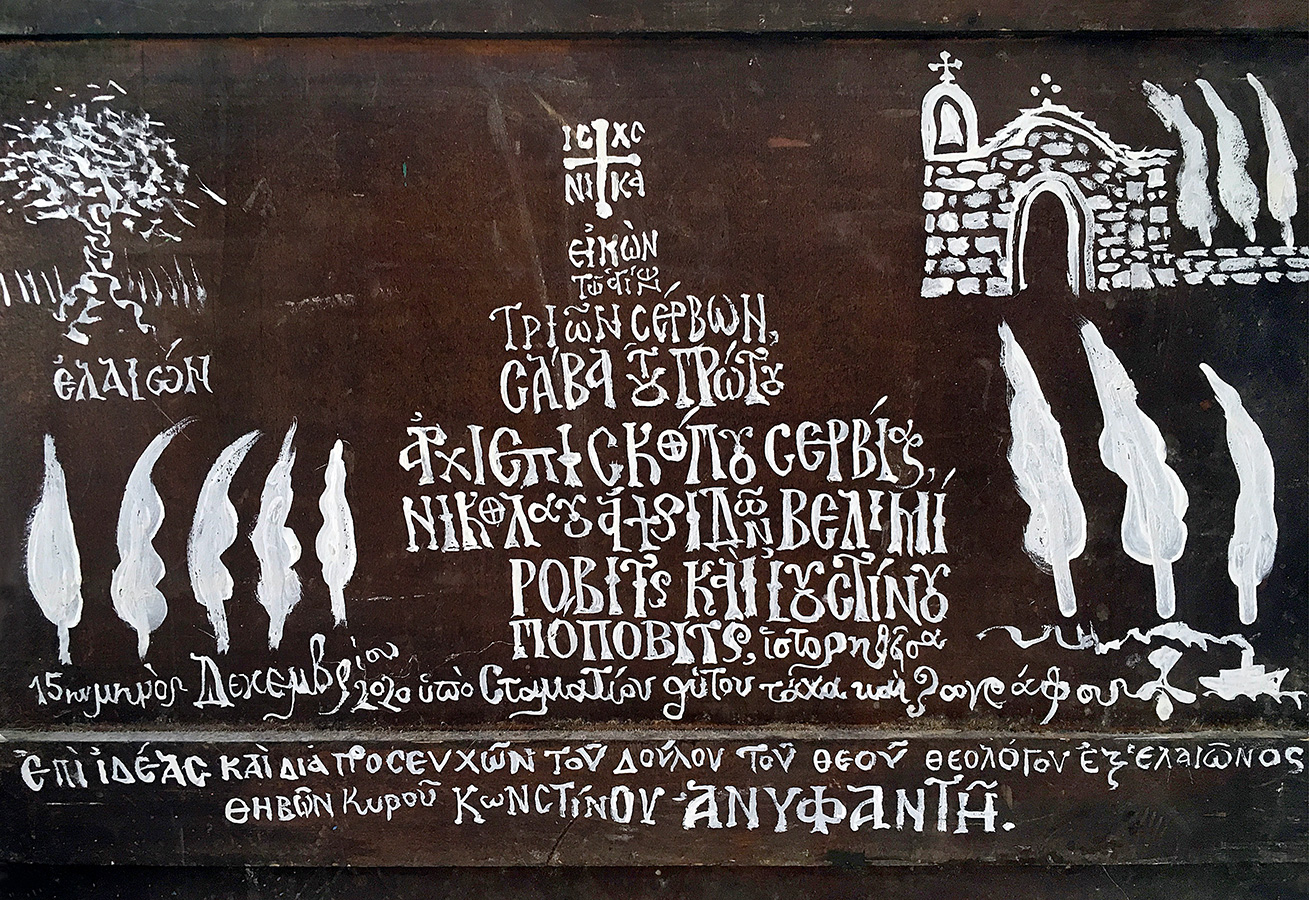 ΙC ΧC
ΝΙ ΚΑ
εἰκὼν
τῶν ἁγίων
ΤΡΙῶΝ CέΡΒωΝ,
CάΒΑ τοῦ Πρώτου
ἀρχιεπισκόπου Cερβίας,
Νικολάου ἀχριδῶν Βελιμί
ροβιτς Καὶ Ιουστίνου
Ποποβιτς, ἱστορηθεῖσα
ἐλαιών
15ην μηνὸς Δεκεμβρίου 2020 ὑπὸ Σταματίου τάχα καὶ ζωγράφου
ἐπὶ ἰδέας καὶ διὰ προσευχῶν τοῦ Δούλου τοῦ θεοῦ θεολόγου ἐξ Ἐλαιῶνος
θηβῶν Κυροῦ Κωνστίνου ἈΝΥΦΑΝΤΗ̃.